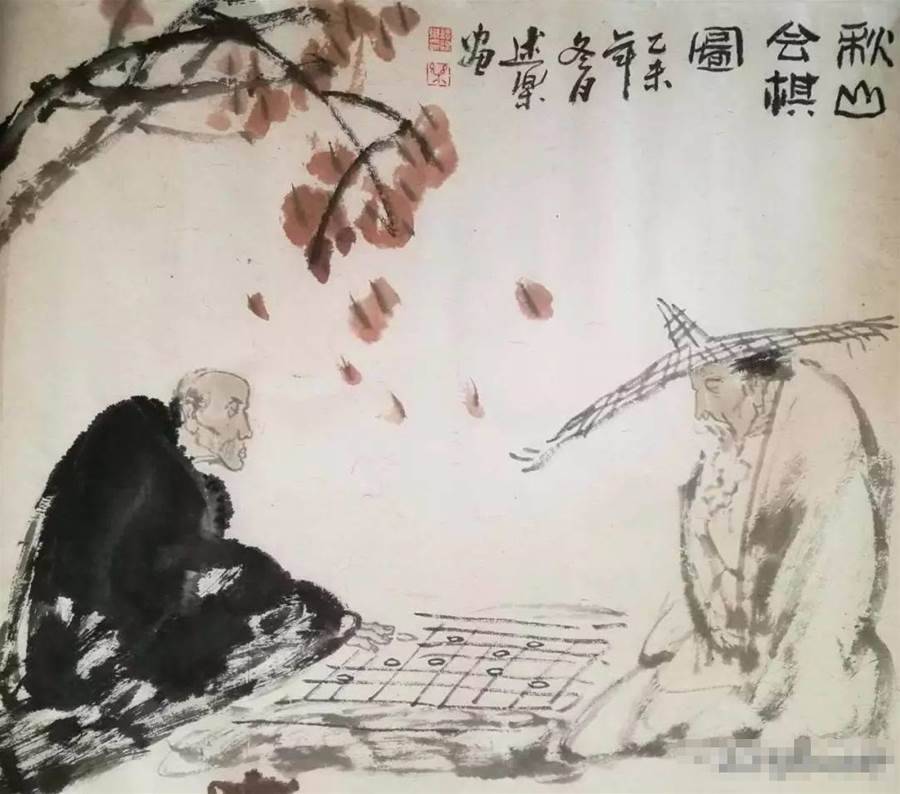 秋山
会棋
圖
乙未
年
冬月
述樂
画